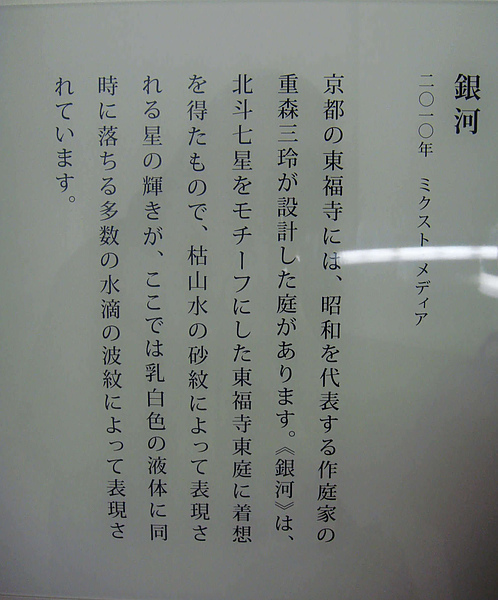 銀河
二〇一〇年 ミクスト メディア
京都の東福寺には、昭和を代表する作庭家の
重森三玲が設計した庭があります。《銀河》は、
北斗七星をモチーフにした東福寺東庭に着想
を得たもので、枯山水の砂紋によって表現さ
れる星の輝きが、ここでは乳白色の液体に同
時に落ちる多数の水滴の波紋によって表現さ
れています。